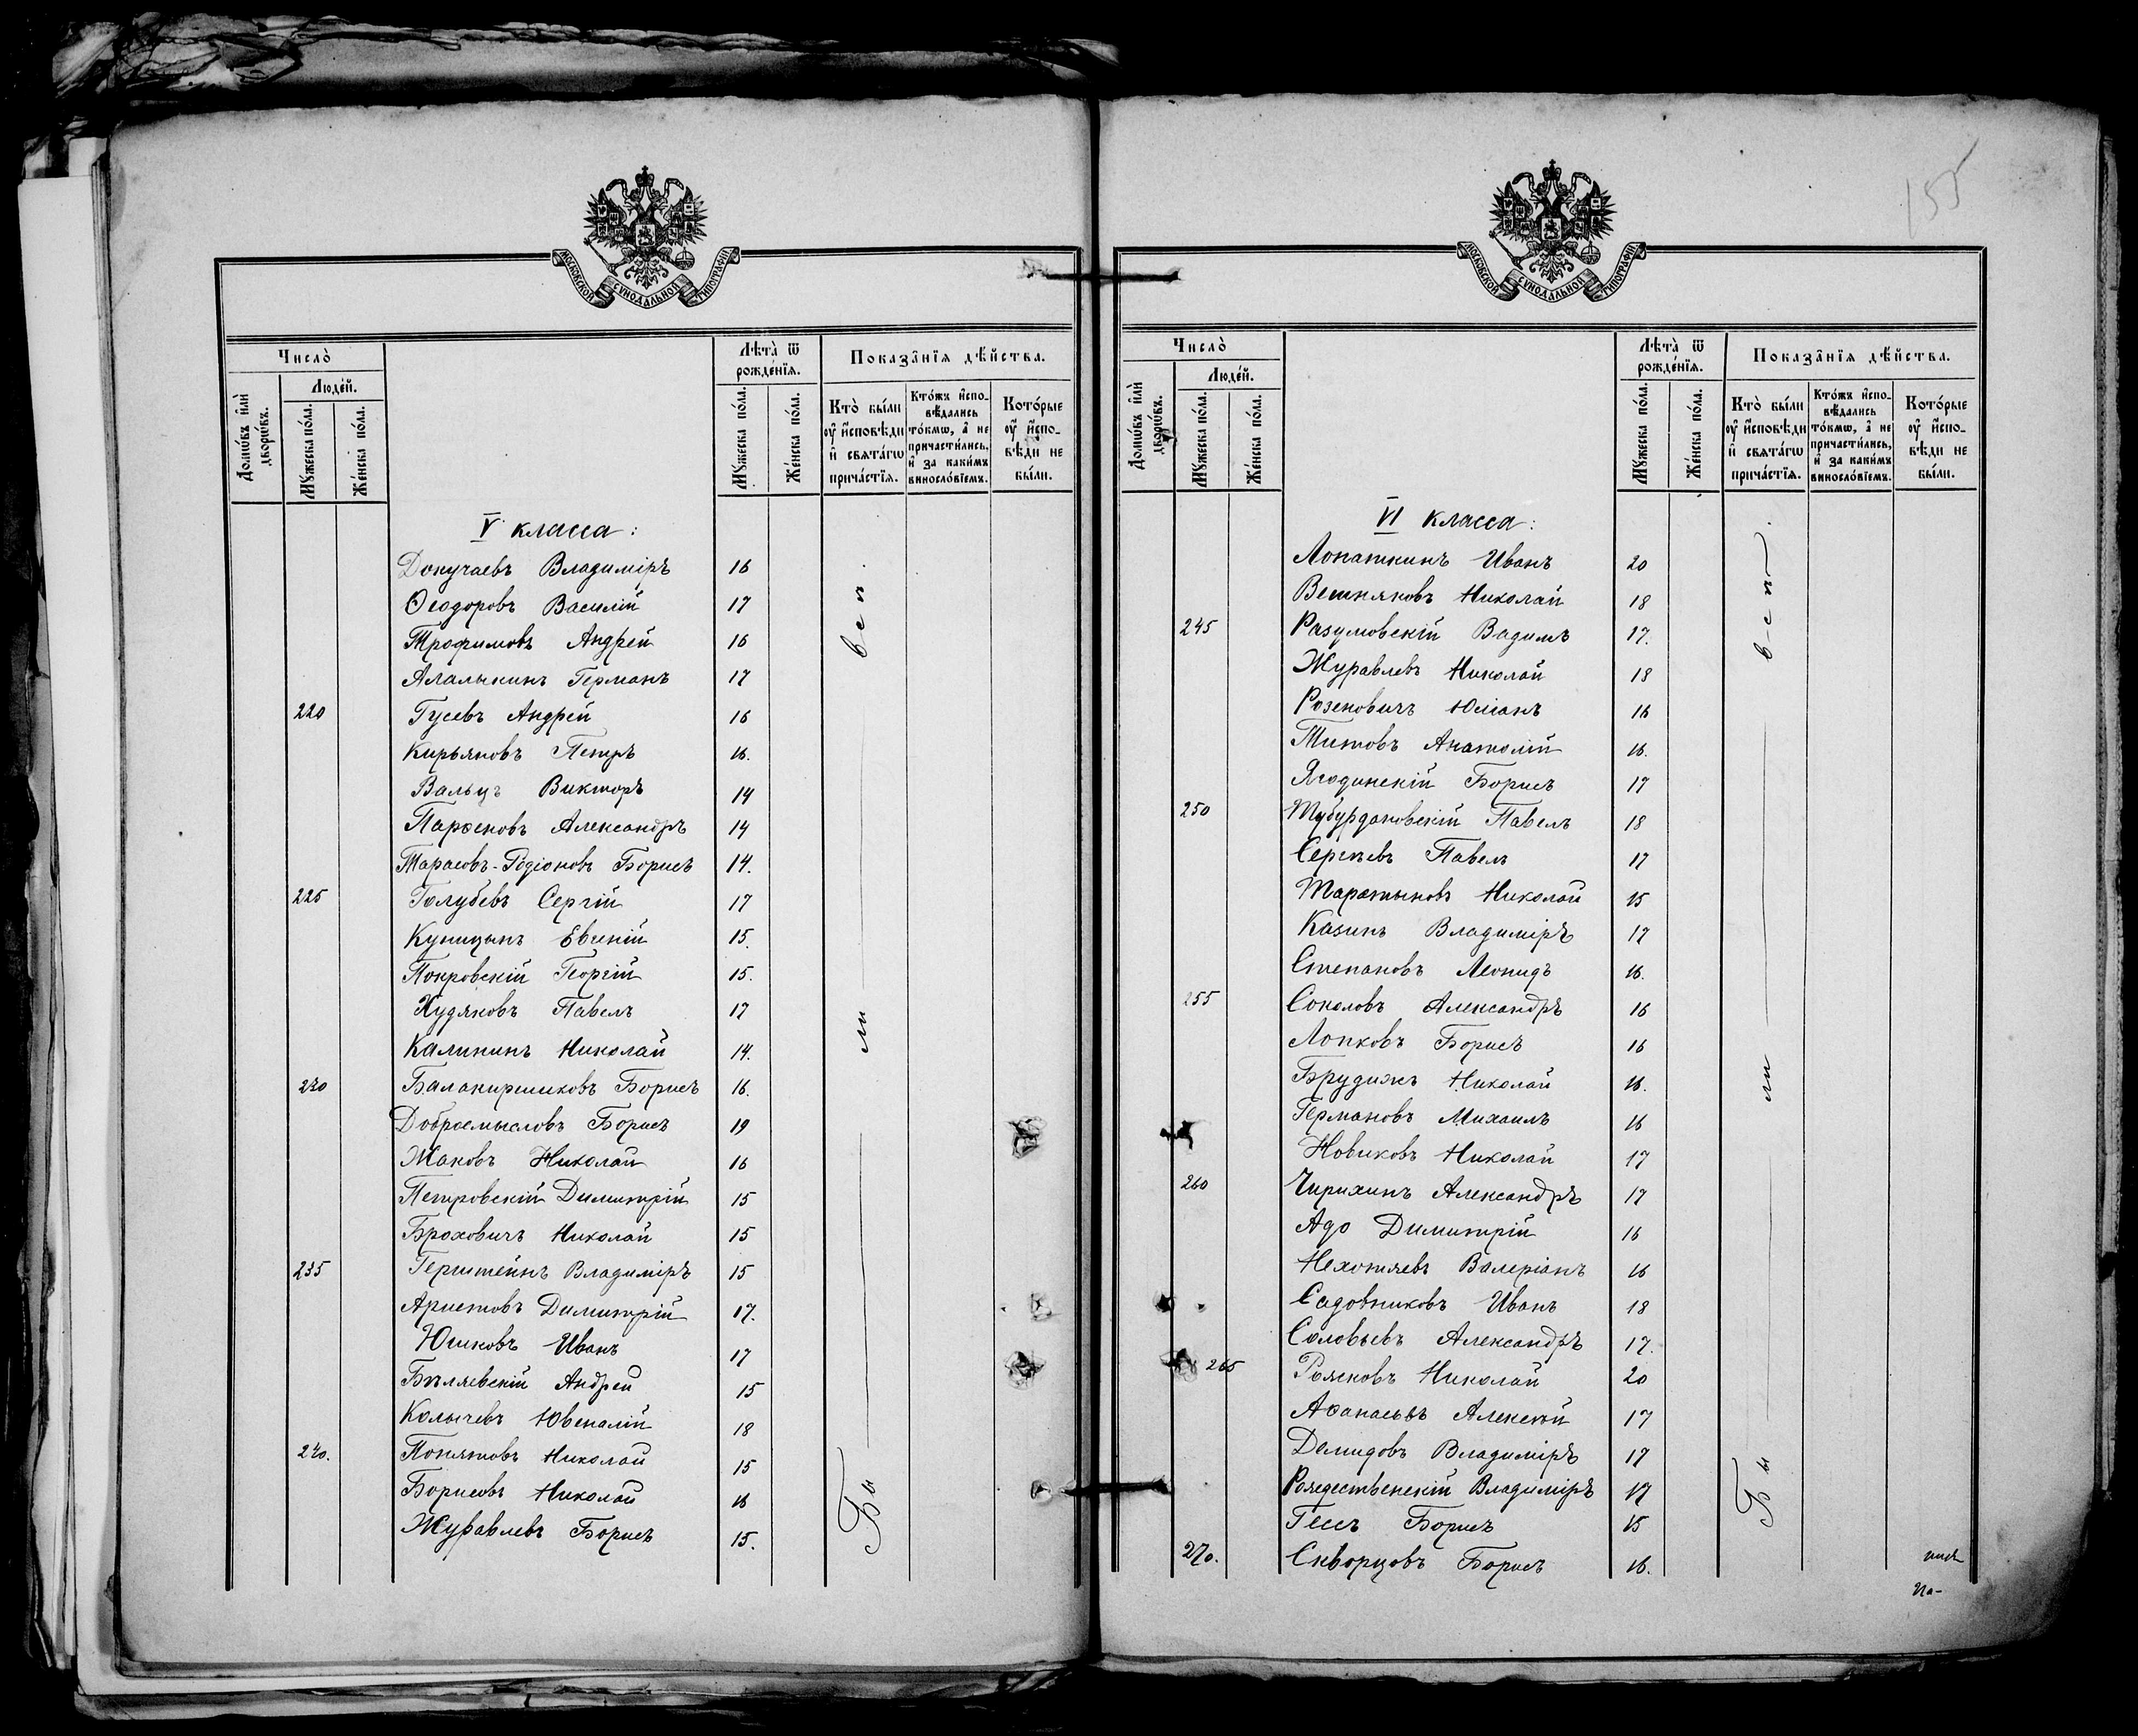 155
МОСКОВСКОЙ СѴНОДАЛЬНОЙ ТИПОГРАФІИ
Число̀
Домѡ́въ и҆лѝ дворѡ́въ.
Люде́й.
Мꙋ́жеска по́ла.
Же́нска по́ла.
Лѣта̀ ѿ рожде́нїѧ.
Мꙋ́жеска по́ла.
Же́нска по́ла.
Показа̑нїѧ дѣ́йства.
Кто̀ бы́ли ᲂу҆ и҆сповѣ́ди и҆ свѧта́гѡ прича́стїѧ.
Кто́жъ и҆спо-вѣ́дались то́кмѡ, а҆ не причасти́лись, и҆ за каки́мъ винносло́вїемъ.
Кото́рые ᲂу҆ и҆спо-вѣ́ди не бы́ли.
V класса:
Докучаевъ Владиміръ 16
Ѳеодоровъ Василій 17
Трофимовъ Андрей 16
Алалыкинъ Германъ 17
220 Гусевъ Андрей 16
Кирьяковъ Петръ 16.
Вальцъ Викторъ 14
Парѳеновъ Александръ 14
Тарасовъ-Родіоновъ Борисъ 14.
225 Голубевъ Сергій 17
Куницынъ Евгеній 15.
Покровскій Георгій 15.
Худяковъ Павелъ 17
Калининъ Николай 14.
230 Балакирщиковъ Борисъ 16.
Добросмысловъ Борисъ 19
Жаковъ Николай 16
Петровскій Димитрій 15
Броховичъ Николай 15
235 Герштейнъ Владиміръ 15
Аристовъ Димитрій 17.
Юшковъ Иванъ 17
Бѣляевскій Андрей 15
Колычевъ Ювеналій 18
240. Понятовъ Николай 15
Борисовъ Николай 16
Журавлевъ Борисъ 15.
Бы ли всп.
МОСКОВСКОЙ СѴНОДАЛЬНОЙ ТИПОГРАФІИ
Число̀
Домѡ́въ и҆лѝ дворѡ́въ.
Люде́й.
Мꙋ́жеска по́ла.
Же́нска по́ла.
Лѣта̀ ѿ рожде́нїѧ.
Мꙋ́жеска по́ла.
Же́нска по́ла.
Показа̑нїѧ дѣ́йства.
Кто̀ бы́ли ᲂу҆ и҆сповѣ́ди и҆ свѧта́гѡ прича́стїѧ.
Кто́жъ и҆спо-вѣ́дались то́кмѡ, а҆ не причасти́лись, и҆ за каки́мъ винносло́вїемъ.
Кото́рые ᲂу҆ и҆спо-вѣ́ди не бы́ли.
VI класса:
Лопаткинъ Иванъ 20
Вешняковъ Николай 18
245 Разумовскій Вадимъ 17.
Журавлевъ Николай 18
Розеновичъ Юліанъ 16
Титовъ Анатолій 16.
Ягодинскій Борисъ 17
250 Тубурдановскій Павелъ 18
Сергѣевъ Павелъ 17
Таратыновъ Николай 15
Казинъ Владиміръ 17
Степановъ Леонидъ 16.
255 Соколовъ Александръ 16
Лопковъ Борисъ 16
Брудижъ Николай 16.
Германовъ Михаилъ 16
Новиковъ Николай 17
260 Чирихинъ Александръ 17
Адо Димитрій 16
Нехотяевъ Валеріанъ 16
Садовниковъ Иванъ 18
Соловьевъ Александръ 17.
265 Рожковъ Николай 20
Аѳанасьевъ Алексѣй 17
Демидовъ Владиміръ 17
Рождественскій Владиміръ 17
Гессъ Борисъ 15
270. Скворцовъ Борисъ 16.
Бы ли всп